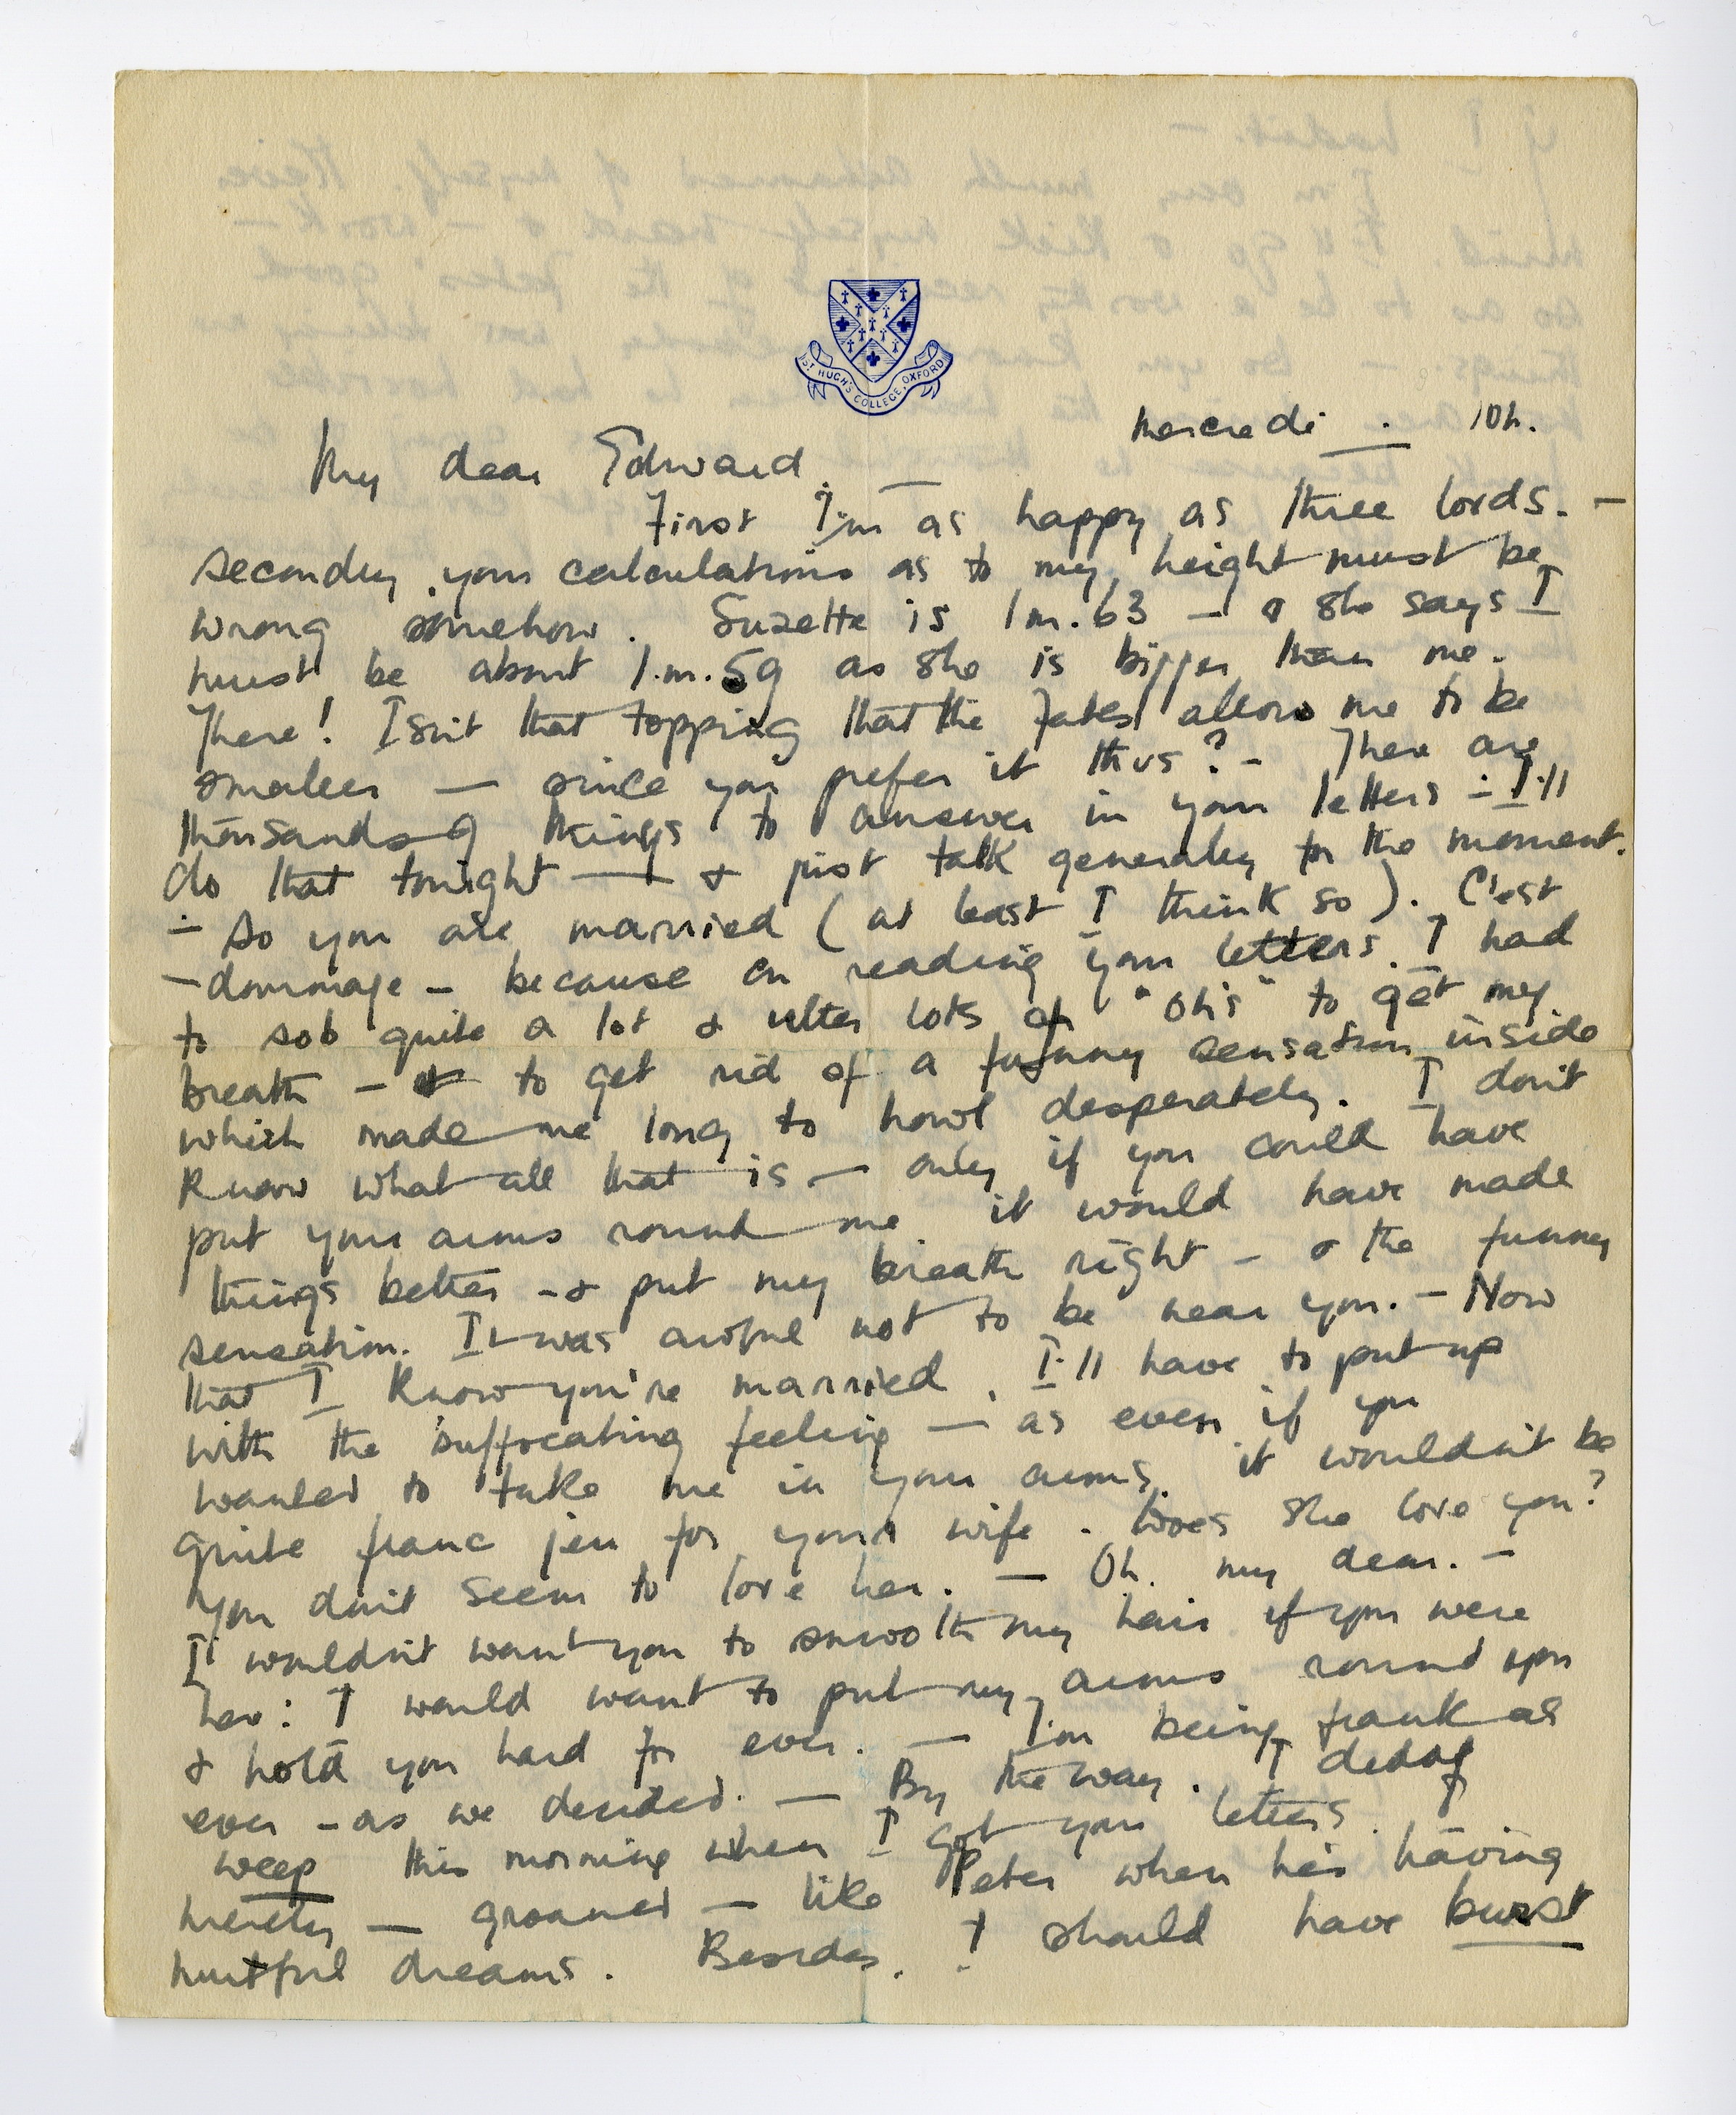 ST HUGH'S COLLEGE, OXFORD
Mercredi . 10h.
My dear Edward. —
First I'm as happy as three lords. —
secondly, your calculations as to my height must be
wrong somehow. Suzette is 1m.63 — & she says I
must be about 1.m.59 as she is bigger than me.
There! Isn't that topping that the Fates allow me to be
smaller — since you prefer it thus? — There are
thousands of things to answer in your letters — I'll
do that tonight — & just talk generally for the moment.
— So you are married (at least I think so). C'est
— dommage — because on reading your letters. I had
to sob quite a lot & utter lots of "Oh's" to get my
breath — & to get rid of a funny sensation inside
which made me long to howl desperately. I don't
know what all that is — only if you could have
put your arms round me it would have made
things better — & put my breath right — & the funny
sensation. It was awful not to be near you. — Now
that I know you're married, I'll have to put up
with the suffocating feeling — as even if you
wanted to take me in your arms, it wouldn't be
quite franc jeu for your wife. Does she love you?
You don't seem to love her. — Oh. my dear. —
I wouldn't want you to smooth my hair if you were
her: I would want to put my arms round you
& hold you hard for ever. — I'm being frank as
ever — as we decided. — By the way. I didn't
weep this morning when I got your letters.
merely — groaned — like Peter when he's having
hurtful dreams. Besides, I should have burst